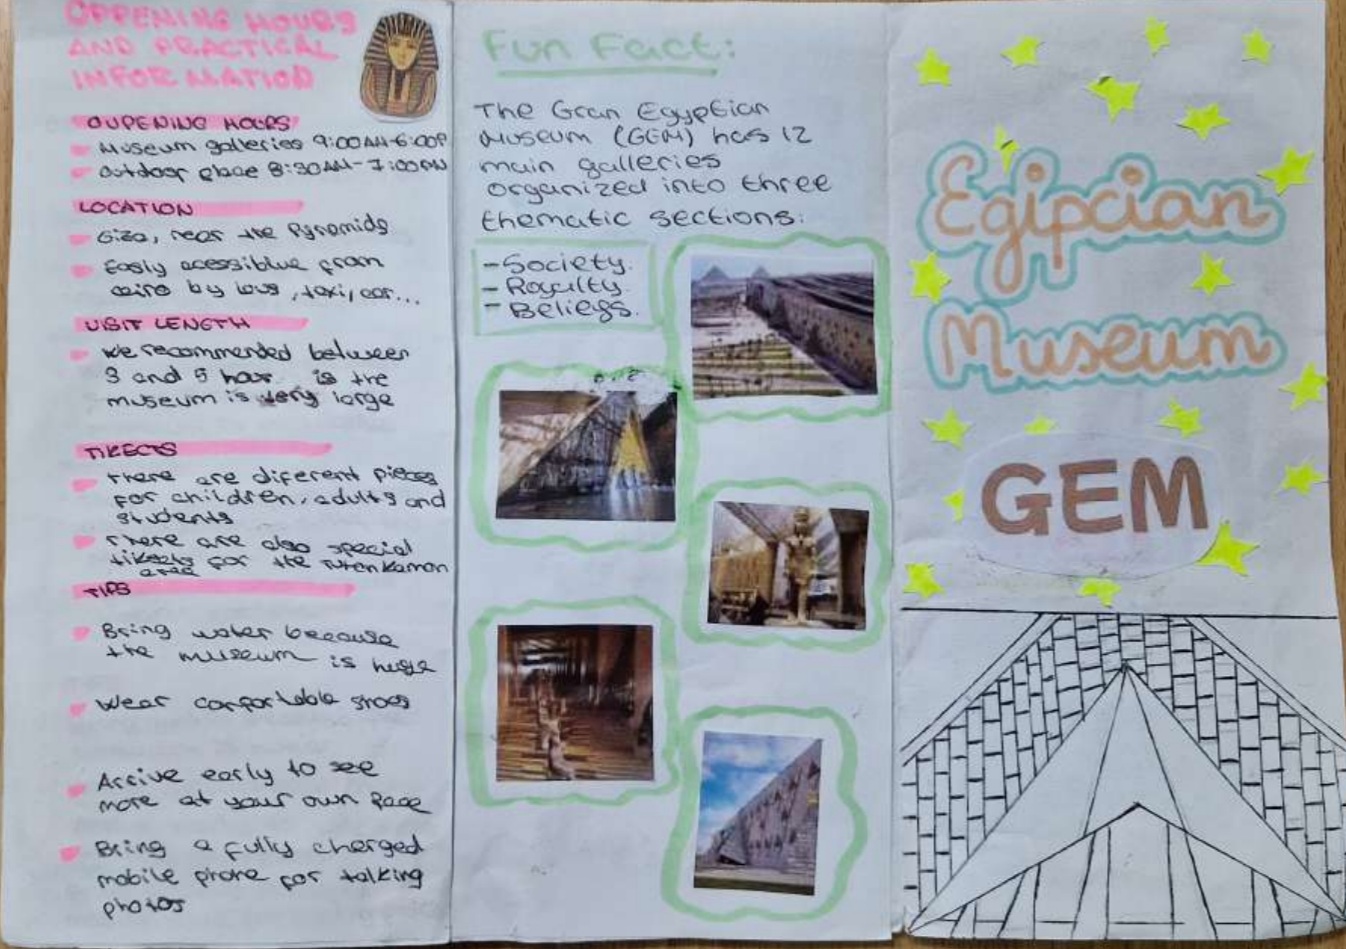 OPPENING HOURS
AND PRACTICAL
INFORMATION
OUPENING HOURS
Museum galleries 9:00AM-6:00P
Outdoor place 8:30AM-7:00PM
LOCATION
Giza, near the Pyramids
Easly acessiblue from
cairo by bus, taxi, car...
VISIT LENGTH
We recommended between
3 and 5 hour is the
museum is very large
TIKECTS
There are diferent pieces
for children, adults and
students
There are also special
tikects for the Tutenkamon
area
TIPS
Bring water because
the museum is huge
Wear confortable shoes
Arrive early to see
more at your own pace
Bring a fully charged
mobile phone for talking
photos
Fun Fact:
The Gran Egyptian
Museum (GEM) has 12
main galleries
organized into three
thematic sections:
-Society.
-Royalty.
-Beliegs.
Egipcian
Museum
GEM